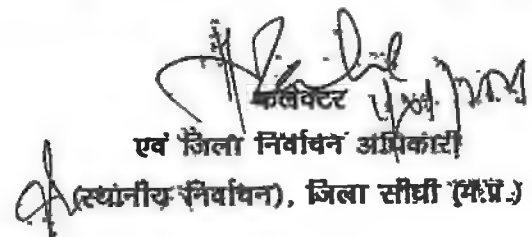 कलेक्टर
एवं जिला निर्वाचन अधिकारी
(स्थानीय निर्वाचन), जिला सीधी (म.प्र.)